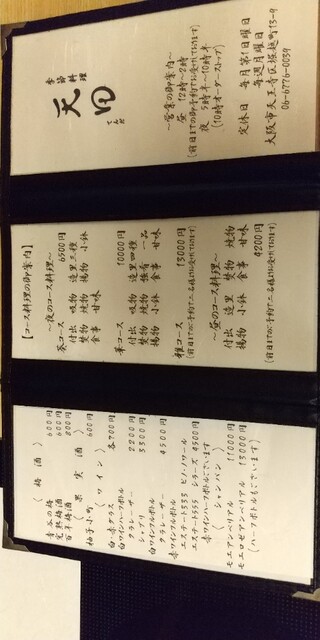 季節料理
天田
てんだ
〜営業の御案内〜
昼 12時〜2時
(前日までの御予約でお受けしております)
夜 5時半〜10時半
(10時オーダーストップ)
定休日 毎月第1日曜日
毎週月曜日
大阪市天王寺区堀越町13-9
06-6776-0039
【コース料理の御案内】
〜夜のコース料理〜
葵コース 6500円
付出 吸物 造里三種
焚物 焼物 小鉢
揚物 食事 甘味
華コース 10000円
付出 吸物 造里四種
焚物 焼物 強肴 一品
揚物 小鉢 食事 甘味
雅コース 13000円
(前日までのご予約で二名様よりお受けしております)
〜昼のコース料理〜
付出 造里 焚物 焼物
揚物 小鉢 食事 甘味
4200円
(前日までのご予約で二名様よりお受けしております)
〈梅酒〉
青谷の梅 600円
完熟梅酒 600円
百年梅酒 800円
〈果実酒〉
柚子小町 600円
〈ワイン〉
白・赤グラス 各700円
白ワインハーフボトル
クラレーザー 2200円
シャブリ 3300円
白ワインフルボトル
クラレーザー 4500円
赤ワインフルボトル
エステート555 ピノ・ノワール
エステート555 シラーズ 4500円
赤ワインハーフボトルございます
〈シャンパン〉
モエアンペリアル 11000円
モエロゼアンペリアル 13000円
(ハーフボトルもございます)